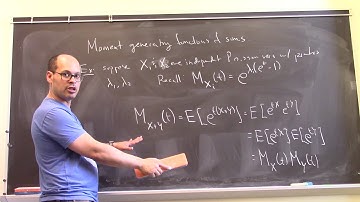 Moment generating functions of sums
Ex: suppose X₁, X₂ are independent Poisson vars w/ params
λ₁, λ₂ Recall M_{X_i}(t) = e^{λ(e^t-1)}
M_{X+Y}(t) = E[e^{t(X+Y)}] = E[e^{tX} e^{tY}]
= E[e^{tX}] E[e^{tY}]
= M_X(t) M_Y(t)